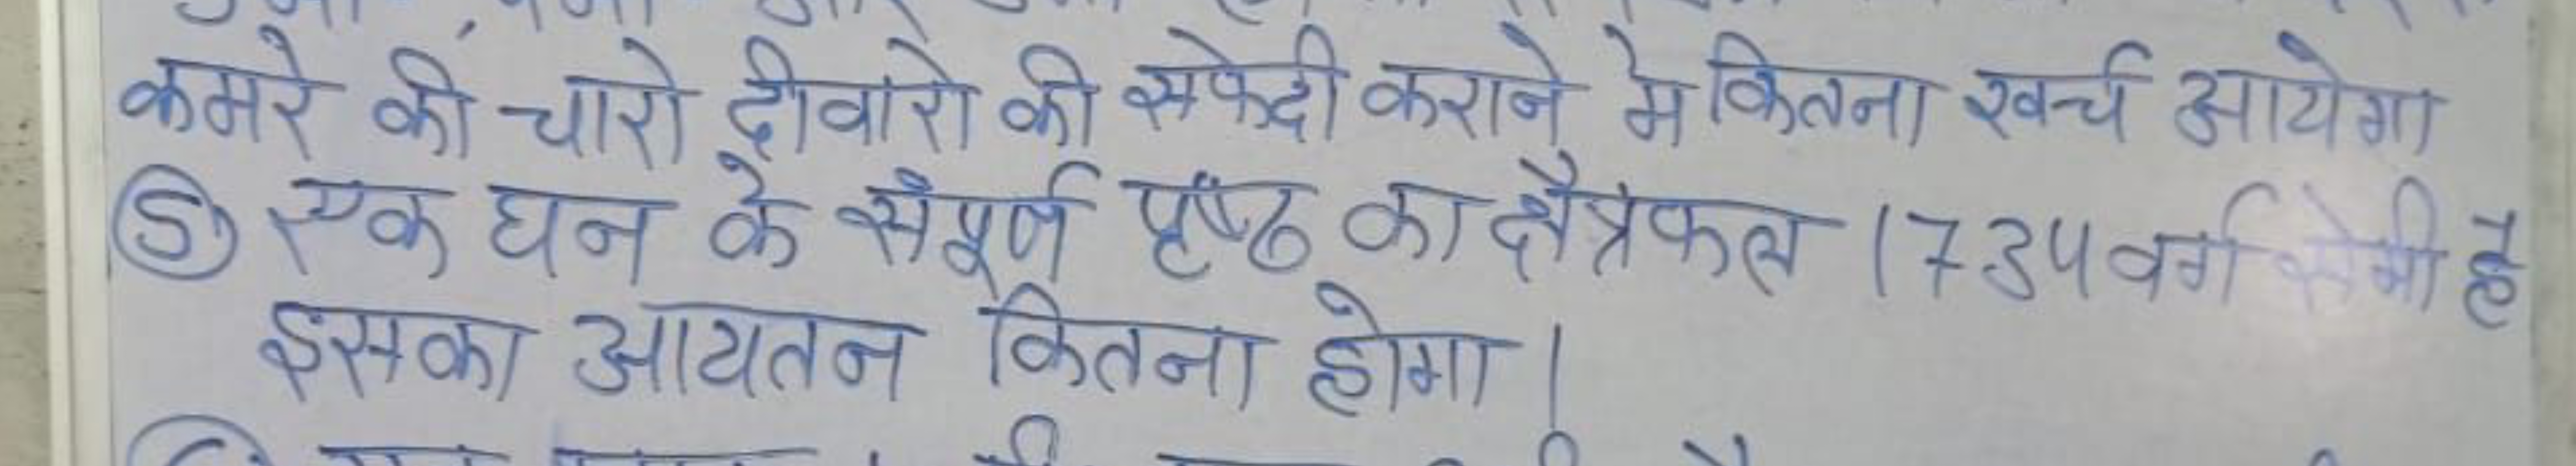 कमरे की चारो दीवारो की सफेदी कराने मे कितना खर्च आयेगा
⑤ एक घन के संपूर्ण पृष्ठ का क्षैत्रफल 1734 वर्ग सेमी है
इसका आयतन कितना होगा।